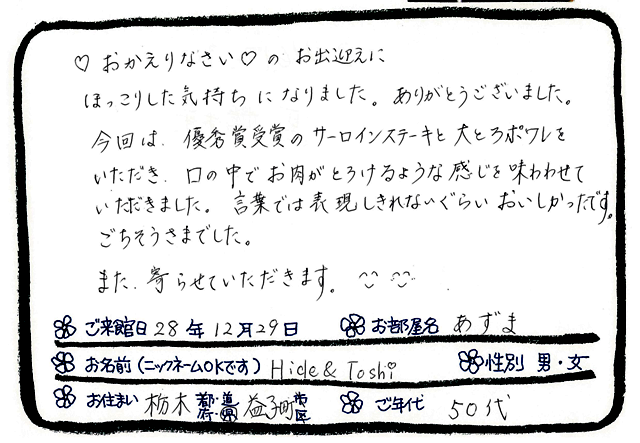 ♡ おかえりなさい ♡ の お出迎えに
ほっこりした気持ちになりました。ありがとうございました。
今回は、優秀賞受賞のサーロインステーキと大とろポワレを
いただき、口の中でお肉がとろけるような感じを味わわせて
いただきました。言葉では表現しきれないぐらいおいしかったです。
ごちそうさまでした。
また、寄らせていただきます。
ご来館日 28年12月29日 お部屋名 あずま
お名前(ニックネームOKです) Hide & Toshi 性別 男・女
お住まい 栃木 都道府県 益子町 市区 ご年代 50代